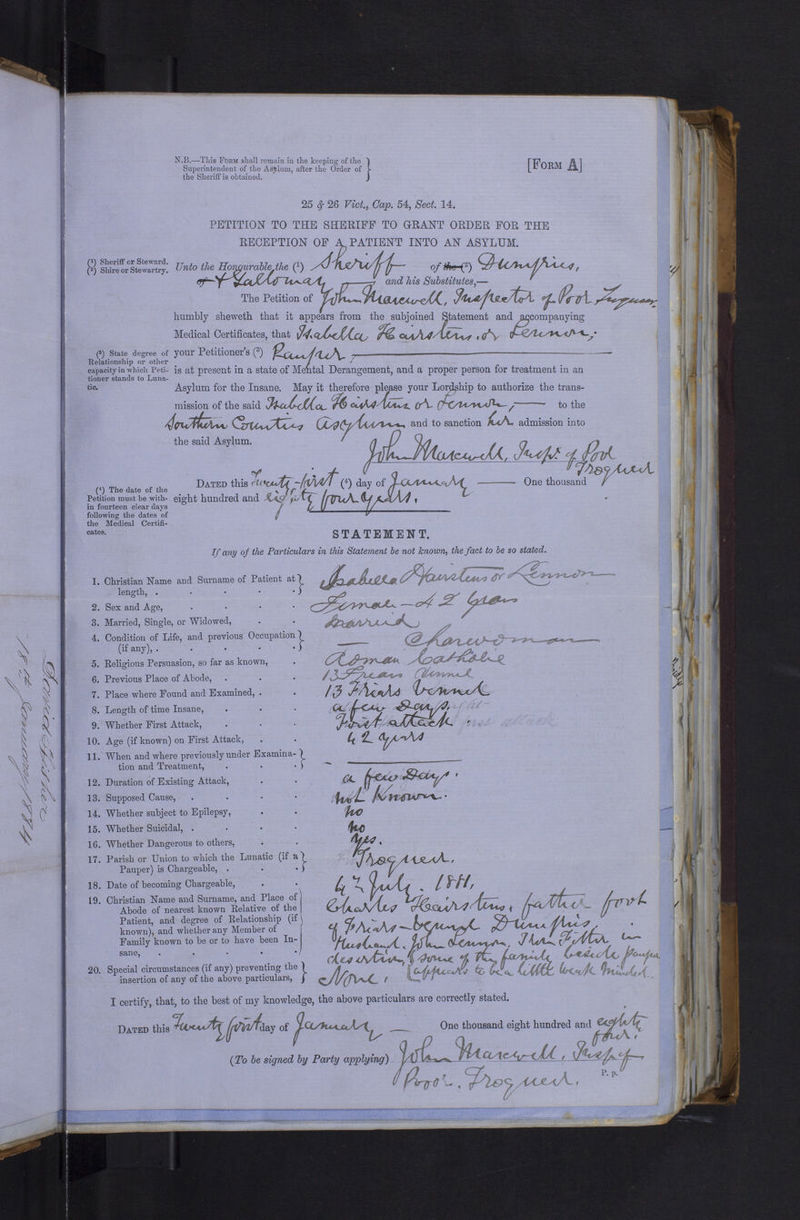 N.B.—This Form shall remain in the keeping of the
Superintendent of the Asylum, after the Order of
the Sheriff is obtained.
[Form A]
25 & 26 Vict., Cap. 54, Sect. 14.
PETITION TO THE SHERIFF TO GRANT ORDER FOR THE
RECEPTION OF A PATIENT INTO AN ASYLUM.
(1) Sheriff or Steward.
(2) Shire or Stewartry.
Unto the Honourable the (1) Sheriff of the (2) Dumfries,
& Galloway and his Substitutes,—
The Petition of John Maxwell, Inspector of Poor
humbly sheweth that it appears from the subjoined Statement and accompanying
Medical Certificates, that Isabella Hairstens or Lennon,
(3) State degree of
Relationship or other
capacity in which Peti-
tioner stands to Luna-
tic.
your Petitioner's (3) Pauper,
is at present in a state of Mental Derangement, and a proper person for treatment in an
Asylum for the Insane. May it therefore please your Lordship to authorize the trans-
mission of the said Isabella Hairstens or Lennon, to the
Southern Counties Asylum and to sanction her admission into
the said Asylum.
John Maxwell, Inspr of Poor
Troqueer
(4) The date of the
Petition must be with-
in fourteen clear days
following the dates of
the Medical Certifi-
cates.
Dated this Twenty-first (4) day of January One thousand
eight hundred and eighty four years,
STATEMENT.
If any of the Particulars in this Statement be not known, the fact to be so stated.
1. Christian Name and Surname of Patient at
length, . Isabella Hairstens or Lennon
2. Sex and Age, Female — 42 years
3. Married, Single, or Widowed, Married
4. Condition of Life, and previous Occupation
(if any), . Charwoman
5. Religious Persuasion, so far as known, Roman Catholic
6. Previous Place of Abode, . 13 Friars Vennel
7. Place where Found and Examined, . 13 Friars Vennel
8. Length of time Insane, a few Days
9. Whether First Attack, First attack
10. Age (if known) on First Attack, 42 years
11. When and where previously under Examina-
tion and Treatment,
12. Duration of Existing Attack, a few Days.
13. Supposed Cause, . Not Known.
14. Whether subject to Epilepsy, No
15. Whether Suicidal, . No
16. Whether Dangerous to others, Yes.
17. Parish or Union to which the Lunatic (if a
Pauper) is Chargeable, . Troqueer.
18. Date of becoming Chargeable, July. 1881,
19. Christian Name and Surname, and Place of
Abode of nearest known Relative of the
Patient, and degree of Relationship (if
known), and whether any Member of
Family known to be or to have been In-
sane,
Charles Hairstens, father foot
of Friars-vennel Dumfries.
Husband, John Lennon, in
desertion, some of the family
20. Special circumstances (if any) preventing the
insertion of any of the above particulars,
None, (appears to be a little weak minded.
I certify, that, to the best of my knowledge, the above particulars are correctly stated.
Dated this Twenty first day of January One thousand eight hundred and eighty
four.
(To be signed by Party applying) John Maxwell, Insp of
Poor, Troqueer.
P. p.
18th January 1884